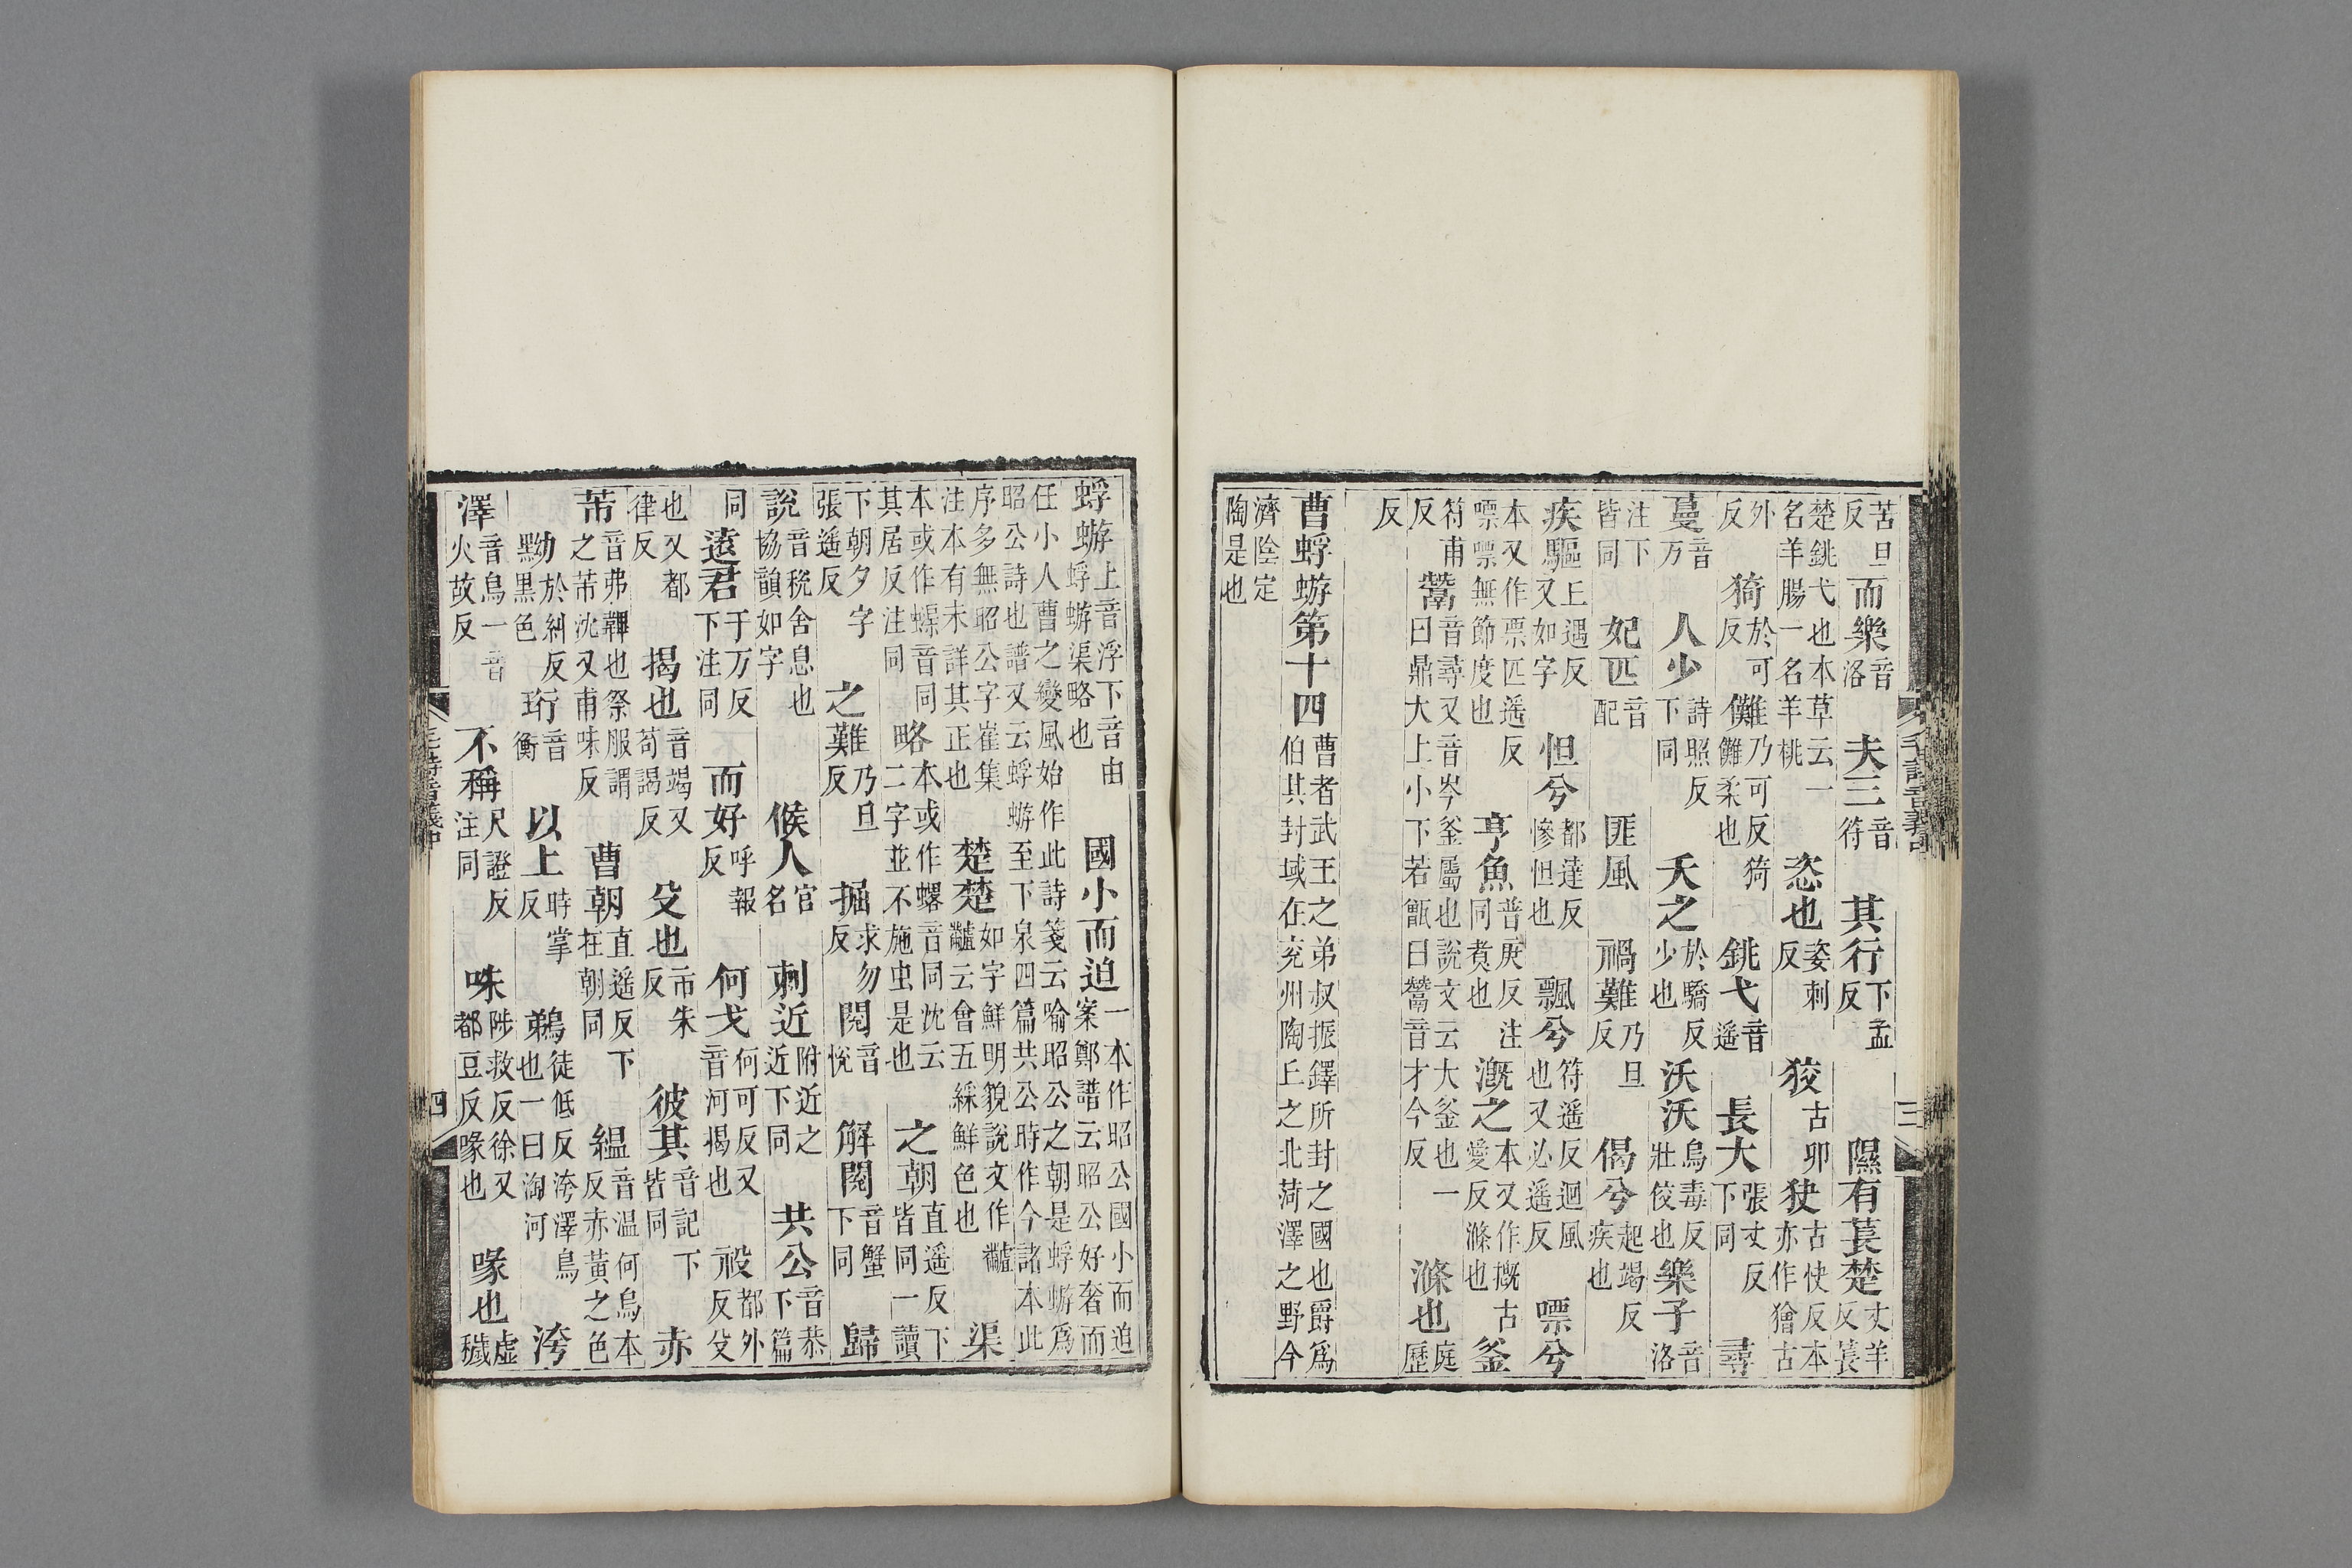 苦旦反而樂音洛夫三音符其行下孟反隰有萇楚丈羊反萇
楚銚弋也本草云一名羊腸一名羊桃恣也姿刺反狡古卯㹟古快反本亦作獪古
外反猗於可反儺乃可反猗儺柔也銚弋音遥長大張丈反下同尋
蔓音万人少詩照反下同夭之於驕反少也沃沃烏毒反壯佼也樂子音洛
注下皆同妃匹音配匪風禍難乃旦反偈兮起竭反疾也
疾驅上遇反又如字怛兮都達反慘怛也飄兮符遥反迴風也又必遥反嘌兮
本又作票匹遥反嘌嘌無節度也亨魚普庚反注同煑也溉之本又作摡古愛反滌也釜
符甫反鬵音尋又音岑釜屬也說文云大釜也一曰鼎大上小下若甑曰鬵音才今反滌也庭歷
反
曹蜉蝣第十四曹者武王之弟叔振鐸所封之國也爵爲伯其封域在兖州陶丘之北菏澤之野今
濟陰定陶是也
蜉蝣上音浮下音由蜉蝣渠略也國小而迫一本作昭公國小而迫案鄭譜云昭公好奢而
任小人曹之變風始作此詩箋云喻昭公之朝是蜉蝣爲昭公詩也譜又云蜉蝣至下泉四篇共公時作今諸本此
序多無昭公字崔集注本有未詳其正也楚楚如字鮮明貌說文作䵵䵵云會五綵鮮色也渠
本或作蟝音同其居反注同略本或作䗉音同沈云二字並不施虫是也之朝直遥反下皆同一讀
下朝夕字張遥反之難乃旦反掘求勿反閱音悅解閱音蟹下同歸
說音稅舍息也協韻如字候人官名刺近附近之近下同共公音恭下篇
同遠君于万反下注同而好呼報反何戈何可反又音河揭也祋都外反殳
也又都律反揭也音竭又苟謁反殳也市朱反彼其音記下皆同赤
芾音弗韠也祭服謂之芾沈又甫味反曹朝直遥反下在朝同緼音温何烏本反赤黄之色
黝於糾反黑色珩音衡以上時掌反鵜徒低反洿澤鳥也一曰淘河洿
澤音烏一音火故反不稱尺證反注同咮陟救反徐又都豆反喙也喙也虚穢
毛詩音義中
四